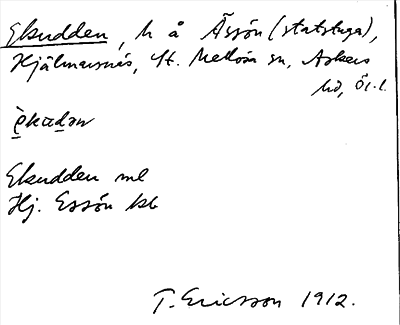 Ekudden, h å Ässön (statstuga),
Hjälmarsnäs, St. Mellösa sn, Askers
hd, Ör. l.
è̲kɑd̲ən
Ekudden ml
Hj. Essön kb
T. Ericsson 1912.